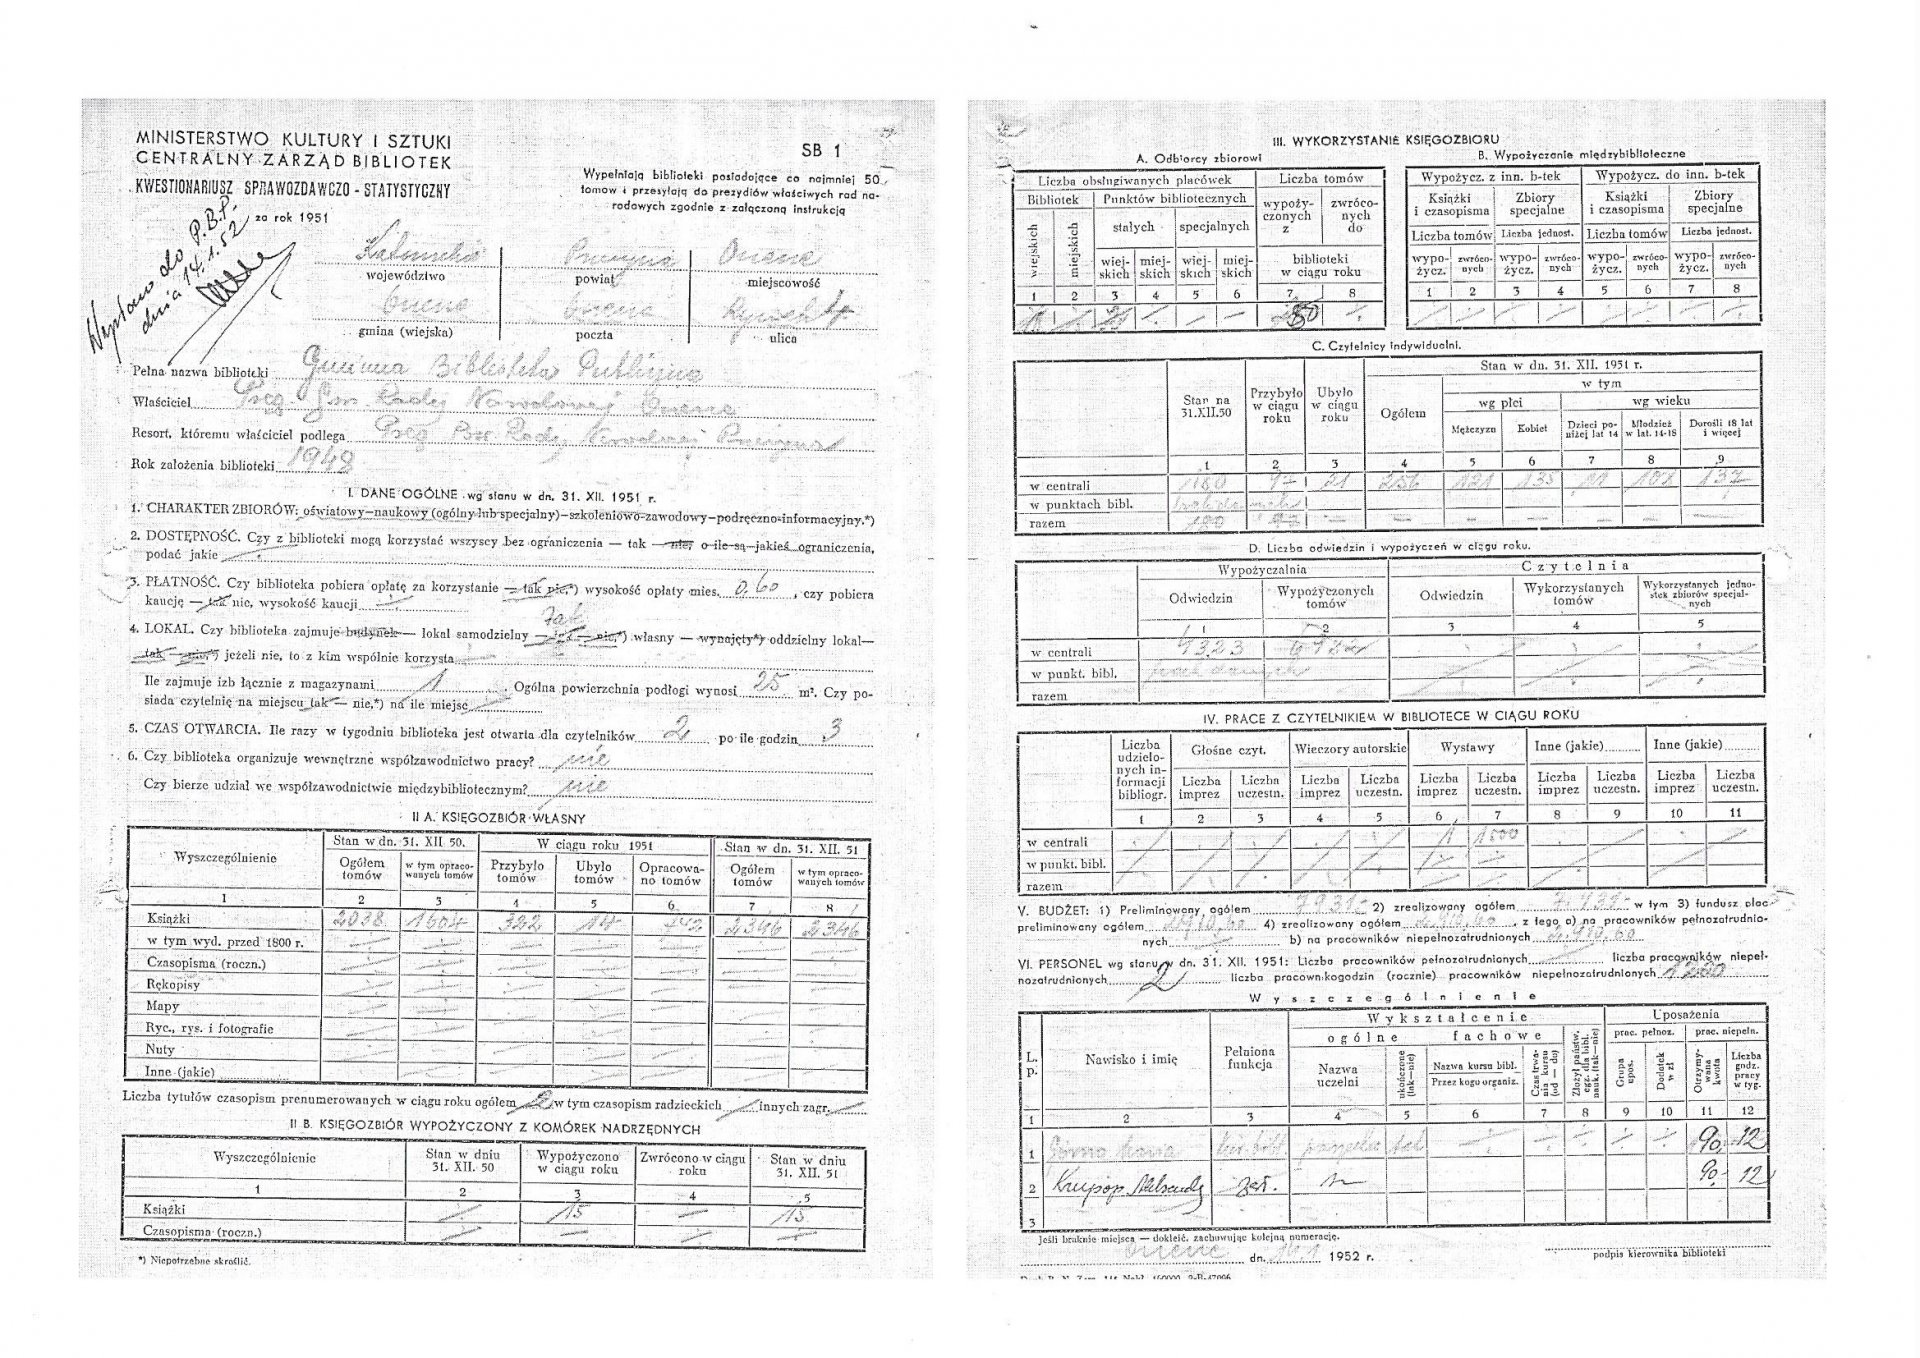 MINISTERSTWO KULTURY I SZTUKI
CENTRALNY ZARZĄD BIBLIOTEK
KWESTIONARIUSZ SPRAWOZDAWCZO - STATYSTYCZNY
za rok 1951
SB 1
Wypełniają biblioteki posiadające co najmniej 50
tomów i przesyłają do prezydiów właściwych rad na-
rodowych zgodnie z załączoną instrukcją
Wysłano do P.B.P.
dnia 14.1.52
województwo powiat miejscowość
gmina (wiejska) poczta ulica
Pełna nazwa biblioteki Gminna Biblioteka Publiczna
Właściciel Gm. Rady Narodowej
Resort, któremu właściciel podlega Rady Narodowej
Rok założenia biblioteki 1948
I. DANE OGÓLNE wg stanu w dn. 31. XII. 1951 r.
1. CHARAKTER ZBIORÓW: oświatowy—naukowy (ogólny lub specjalny)—szkoleniowo-zawodowy—podręczno-informacyjny.*)
2. DOSTĘPNOŚĆ. Czy z biblioteki mogą korzystać wszyscy bez ograniczenia — tak — nie, o ile są jakieś ograniczenia,
podać jakie
3. PŁATNOŚĆ. Czy biblioteka pobiera opłatę za korzystanie — tak nie,*) wysokość opłaty mies. 0,60, czy pobiera
kaucję — tak nie, wysokość kaucji
tak
4. LOKAL. Czy biblioteka zajmuje budynek — lokal samodzielny — tak — nie,*) własny — wynajęty*) oddzielny lokal—
tak — nie,*) jeżeli nie, to z kim wspólnie korzysta
Ile zajmuje izb łącznie z magazynami 1. Ogólna powierzchnia podłogi wynosi 25 m². Czy po-
siada czytelnię na miejscu tak — nie,*) na ile miejsc
5. CZAS OTWARCIA. Ile razy w tygodniu biblioteka jest otwarta dla czytelników 2 po ile godzin 3
6. Czy biblioteka organizuje wewnętrzne współzawodnictwo pracy? nie
Czy bierze udział we współzawodnictwie międzybibliotecznym? nie
II A. KSIĘGOZBIÓR WŁASNY
Wyszczególnienie
Stan w dn. 31. XII 50. W ciągu roku 1951 Stan w dn. 31. XII. 51
Ogółem tomów w tym opraco-wanych tomów Przybyło tomów Ubyło tomów Opracowa-no tomów Ogółem tomów w tym opraco-wanych tomów
1 2 3 4 5 6 7 8
Książki 2038 1604 322 14 742 2346 2346
w tym wyd. przed 1800 r.
Czasopisma (roczn.)
Rękopisy
Mapy
Ryc., rys. i fotografie
Nuty
Inne (jakie)
Liczba tytułów czasopism prenumerowanych w ciągu roku ogółem 2 w tym czasopism radzieckich innych zagr.
II B. KSIĘGOZBIÓR WYPOŻYCZONY Z KOMÓREK NADRZĘDNYCH
Wyszczególnienie Stan w dniu 31. XII. 50 Wypożyczono w ciągu roku Zwrócono w ciągu roku Stan w dniu 31. XII. 51
1 2 3 4 5
Książki 15 15
Czasopisma (roczn.)
*) Niepotrzebne skreślić.
III. WYKORZYSTANIE KSIĘGOZBIORU
A. Odbiorcy zbiorowi
Liczba obsługiwanych placówek Liczba tomów
Bibliotek Punktów bibliotecznych wypoży-czonych z zwróco-nych do
wiejskich miejskich stałych specjalnych
wiej-skich miej-skich wiej-skich miej-skich biblioteki w ciągu roku
1 2 3 4 5 6 7 8
B. Wypożyczanie międzybiblioteczne
Wypożycz. z inn. b-tek Wypożycz. do inn. b-tek
Książki i czasopisma Zbiory specjalne Książki i czasopisma Zbiory specjalne
Liczba tomów Liczba jednost. Liczba tomów Liczba jednost.
wypo-życz. zwróco-nych wypo-życz. zwróco-nych wypo-życz. zwróco-nych wypo-życz. zwróco-nych
1 2 3 4 5 6 7 8
C. Czytelnicy indywidualni.
Stan na 31.XII.50 Przybyło w ciągu roku Ubyło w ciągu roku Stan w dn. 31. XII. 1951 r.
Ogółem w tym
wg płci wg wieku
Mężczyzn Kobiet Dzieci po-niżej lat 14 Młodzież w lat. 14-18 Dorośli 18 lat i więcej
1 2 3 4 5 6 7 8 9
w centrali 180 97 21 256 121 135 11 108 137
w punktach bibl.
razem 180 97
D. Liczba odwiedzin i wypożyczeń w ciągu roku.
Wypożyczalnia Czytelnia
Odwiedzin Wypożyczonych tomów Odwiedzin Wykorzystanych tomów Wykorzystanych jedno-stek zbiorów specjal-nych
1 2 3 4 5
w centrali 4323
w punkt. bibl. brak danych
razem
IV. PRACE Z CZYTELNIKIEM W BIBLIOTECE W CIĄGU ROKU
Liczba udzielo-nych in-formacji bibliogr. Głośne czyt. Wieczory autorskie Wystawy Inne (jakie) Inne (jakie)
Liczba imprez Liczba uczestn. Liczba imprez Liczba uczestn. Liczba imprez Liczba uczestn. Liczba imprez Liczba uczestn. Liczba imprez Liczba uczestn.
1 2 3 4 5 6 7 8 9 10 11
w centrali 1 1500
w punkt. bibl.
razem
V. BUDŻET: 1) Preliminowany ogółem 7931.- 2) zrealizowany ogółem w tym 3) fundusz płac
preliminowany ogółem 4) zrealizowany ogółem 2.910,60, z tego a) na pracowników pełnozatrudnio-
nych b) na pracowników niepełnozatrudnionych 2.910,60
VI. PERSONEL wg stanu w dn. 31. XII. 1951: Liczba pracowników pełnozatrudnionych liczba pracowników niepeł-
nozatrudnionych 2 liczba pracown.kogodzin (rocznie) pracowników niepełnozatrudnionych
Wyszczególnienie
L. p. Nazwisko i imię Pełniona funkcja Wykształcenie Uposażenia
ogólne fachowe prac. pełnoz. prac. niepełn.
Nazwa uczelni ukończone (tak—nie) Nazwa kursu bibl. Przez kogo organiz. Czas trwa-nia kursu (od — do) Złożył państw. egz. dla bibl. nauk. (tak—nie) Grupa upos. Dodatek w zł Otrzymy-wana kwota Liczba godz. pracy w tyg.
1 2 3 4 5 6 7 8 9 10 11 12
1 90,- 12
2 90,- 12
3
Jeśli braknie miejsca — dokleić, zachowując kolejną numerację.
dn. 14 1 1952 r.
podpis kierownika biblioteki